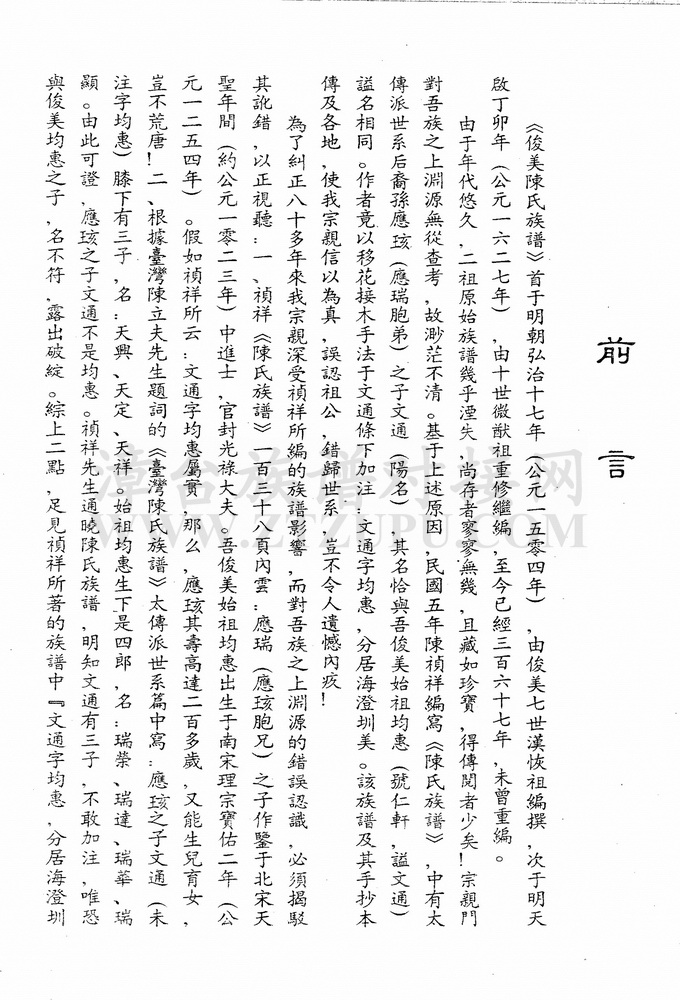 前言
《俊美陳氏族譜》首于明朝弘治十七年（公元一五零四年），由俊美七世漢恢祖編撰，次于明天
啟丁卯年（公元一六二七年），由十世微猷祖重修繼編，至今已經三百六十七年，未曾重編。
由于年代悠久，二祖原始族譜幾乎湮失，尚存者寥寥無幾，且藏如珍寶，得傳閱者少矣！宗親門
對吾族之上淵源無從查考，故渺茫不清。基于上述原因，民國五年陳禎祥編寫《陳氏族譜》，中有太
傳派世系后裔孫應琰（應瑞胞弟）之子文通（陽名），其名恰與吾俊美始祖均惠（號仁軒，謚文通）
謚名相同。作者竟以移花接木手法于文通條下加注：文通字均惠，分居海澄圳美。該族譜及其手抄本
傳及各地，使我宗親信以為真，誤認祖公，錯歸世系，豈不令人遺憾內疚！
為了糾正八十多年來我宗親深受禎祥所編的族譜影響，而對吾族之上淵源的錯誤認識，必須揭駁
其訛錯，以正視聽：一、禎祥《陳氏族譜》一百三十八頁內雲：應瑞（應琰胞兄）之子作鑒于北宋天
聖年間（約公元一零二三年）中進士，官封光祿大夫。吾俊美始祖均惠出生于南宋理宗寶佑二年（公
元一二五四年）。假如禎祥所云：文通字均惠屬實，那么，應琰其壽高達二百多歲，又能生兒育女，
豈不荒唐！二、根據臺灣陳立夫先生題詞的《臺灣陳氏族譜》太傳派世系篇中寫：應琰之子文通（未
注字均惠）膝下有三子，名：天興、天定、天祥。始祖均惠生下是四郎，名：瑞榮、瑞達、瑞華、瑞
顯。由此可證，應琰之子文通不是均惠。禎祥先生通曉陳氏族譜，明知文通有三子，不敢加注，唯恐
與俊美均惠之子，名不符，露出破綻。綜上二點，足見禎祥所著的族譜中『文通字均惠，分居海澄圳
漳台族譜对接网
WWW.ZTZUPU.COM